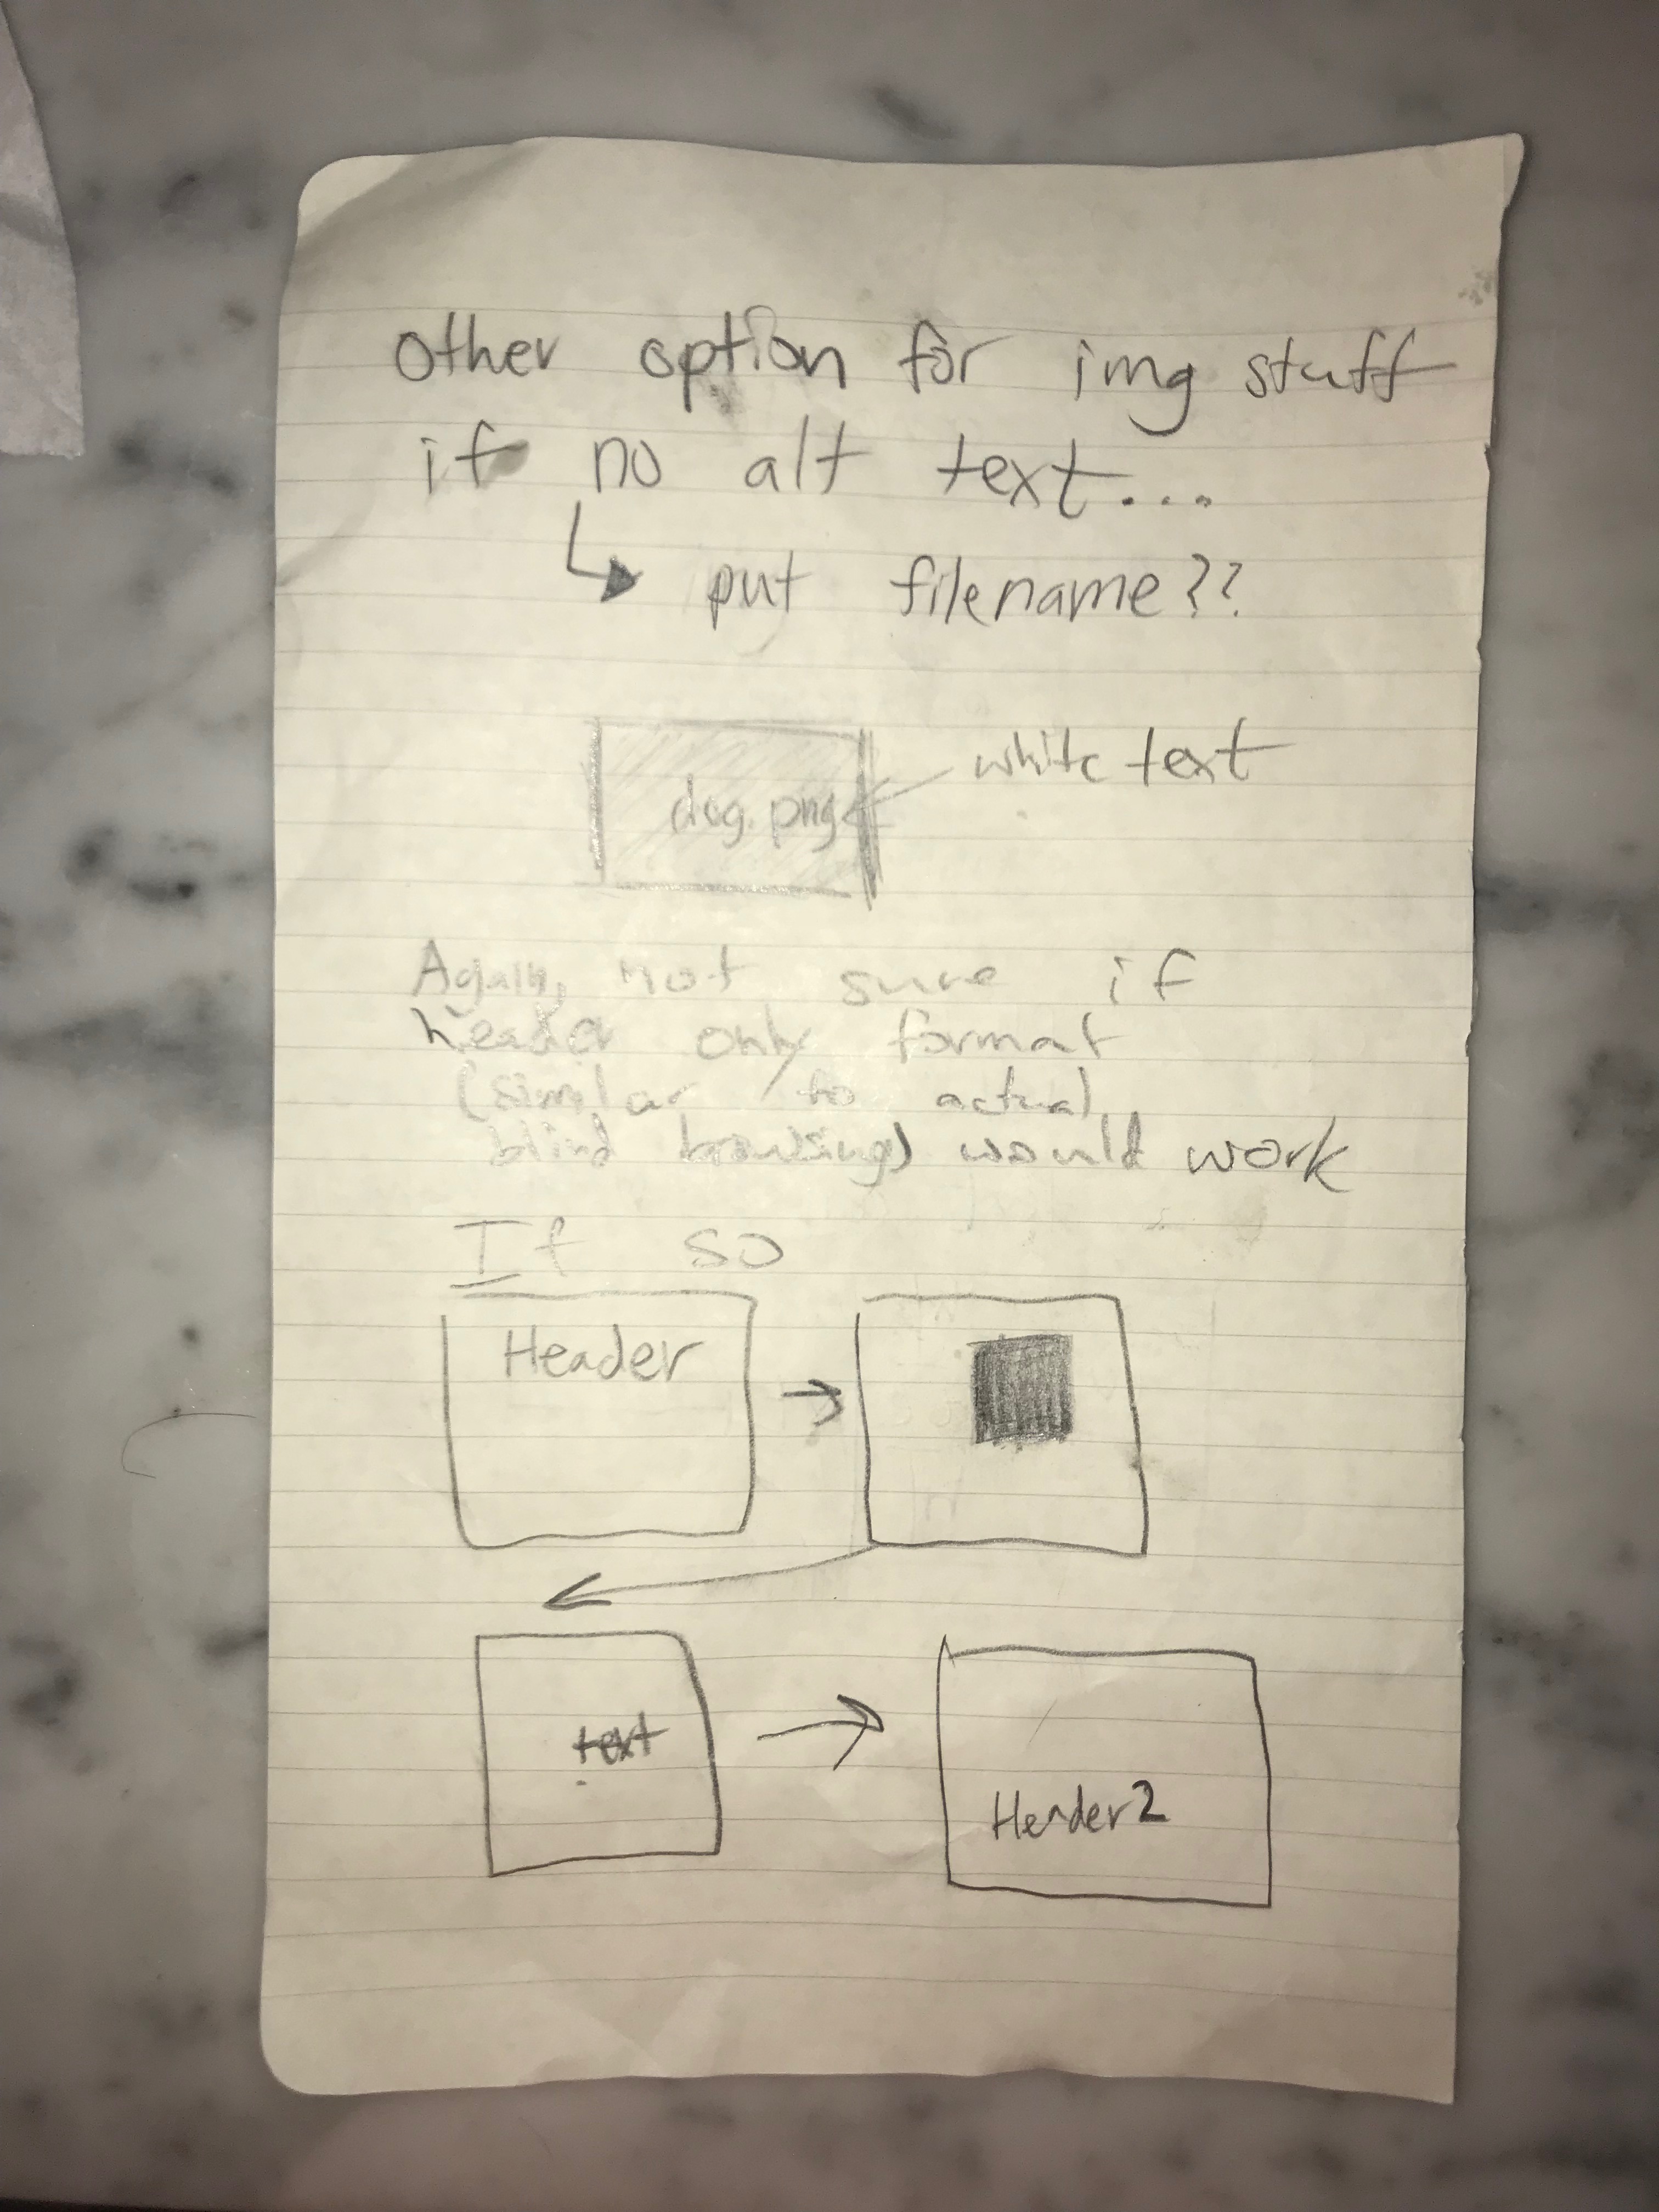 other option for img stuff
if no alt text...
put filename??
dog.png
white text
Again, not sure if
header only format
(similar to actual
blind browsing) would work
If so
Header
text
Header 2